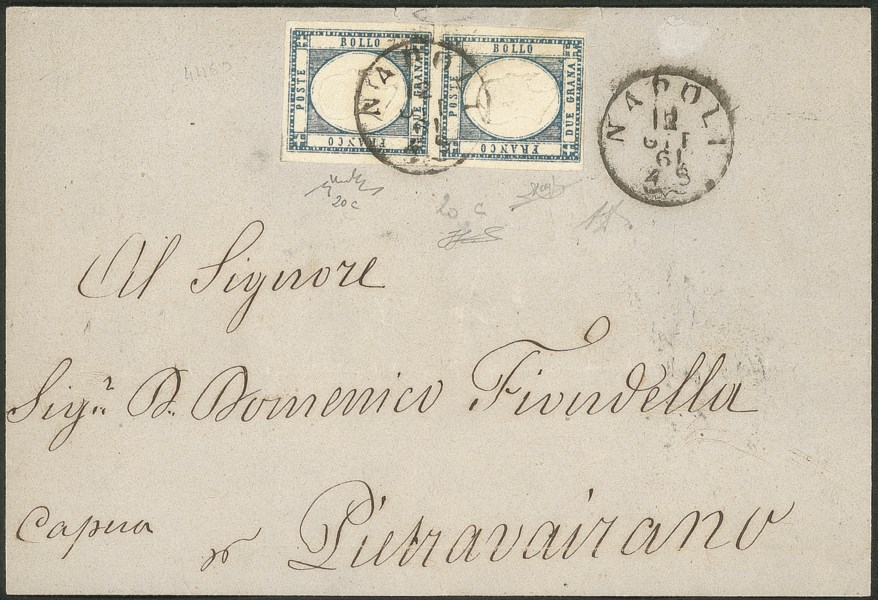 BOLLO
POSTE
DUE GRANA
FRANCO
BOLLO
POSTE
DUE GRANA
FRANCO
NAPOLI
NAPOLI
12
OTT
61
4 S
20 c
20 c
Al Signore
Sig.r D. Domenico Fiondella
Capua p Pietravairano